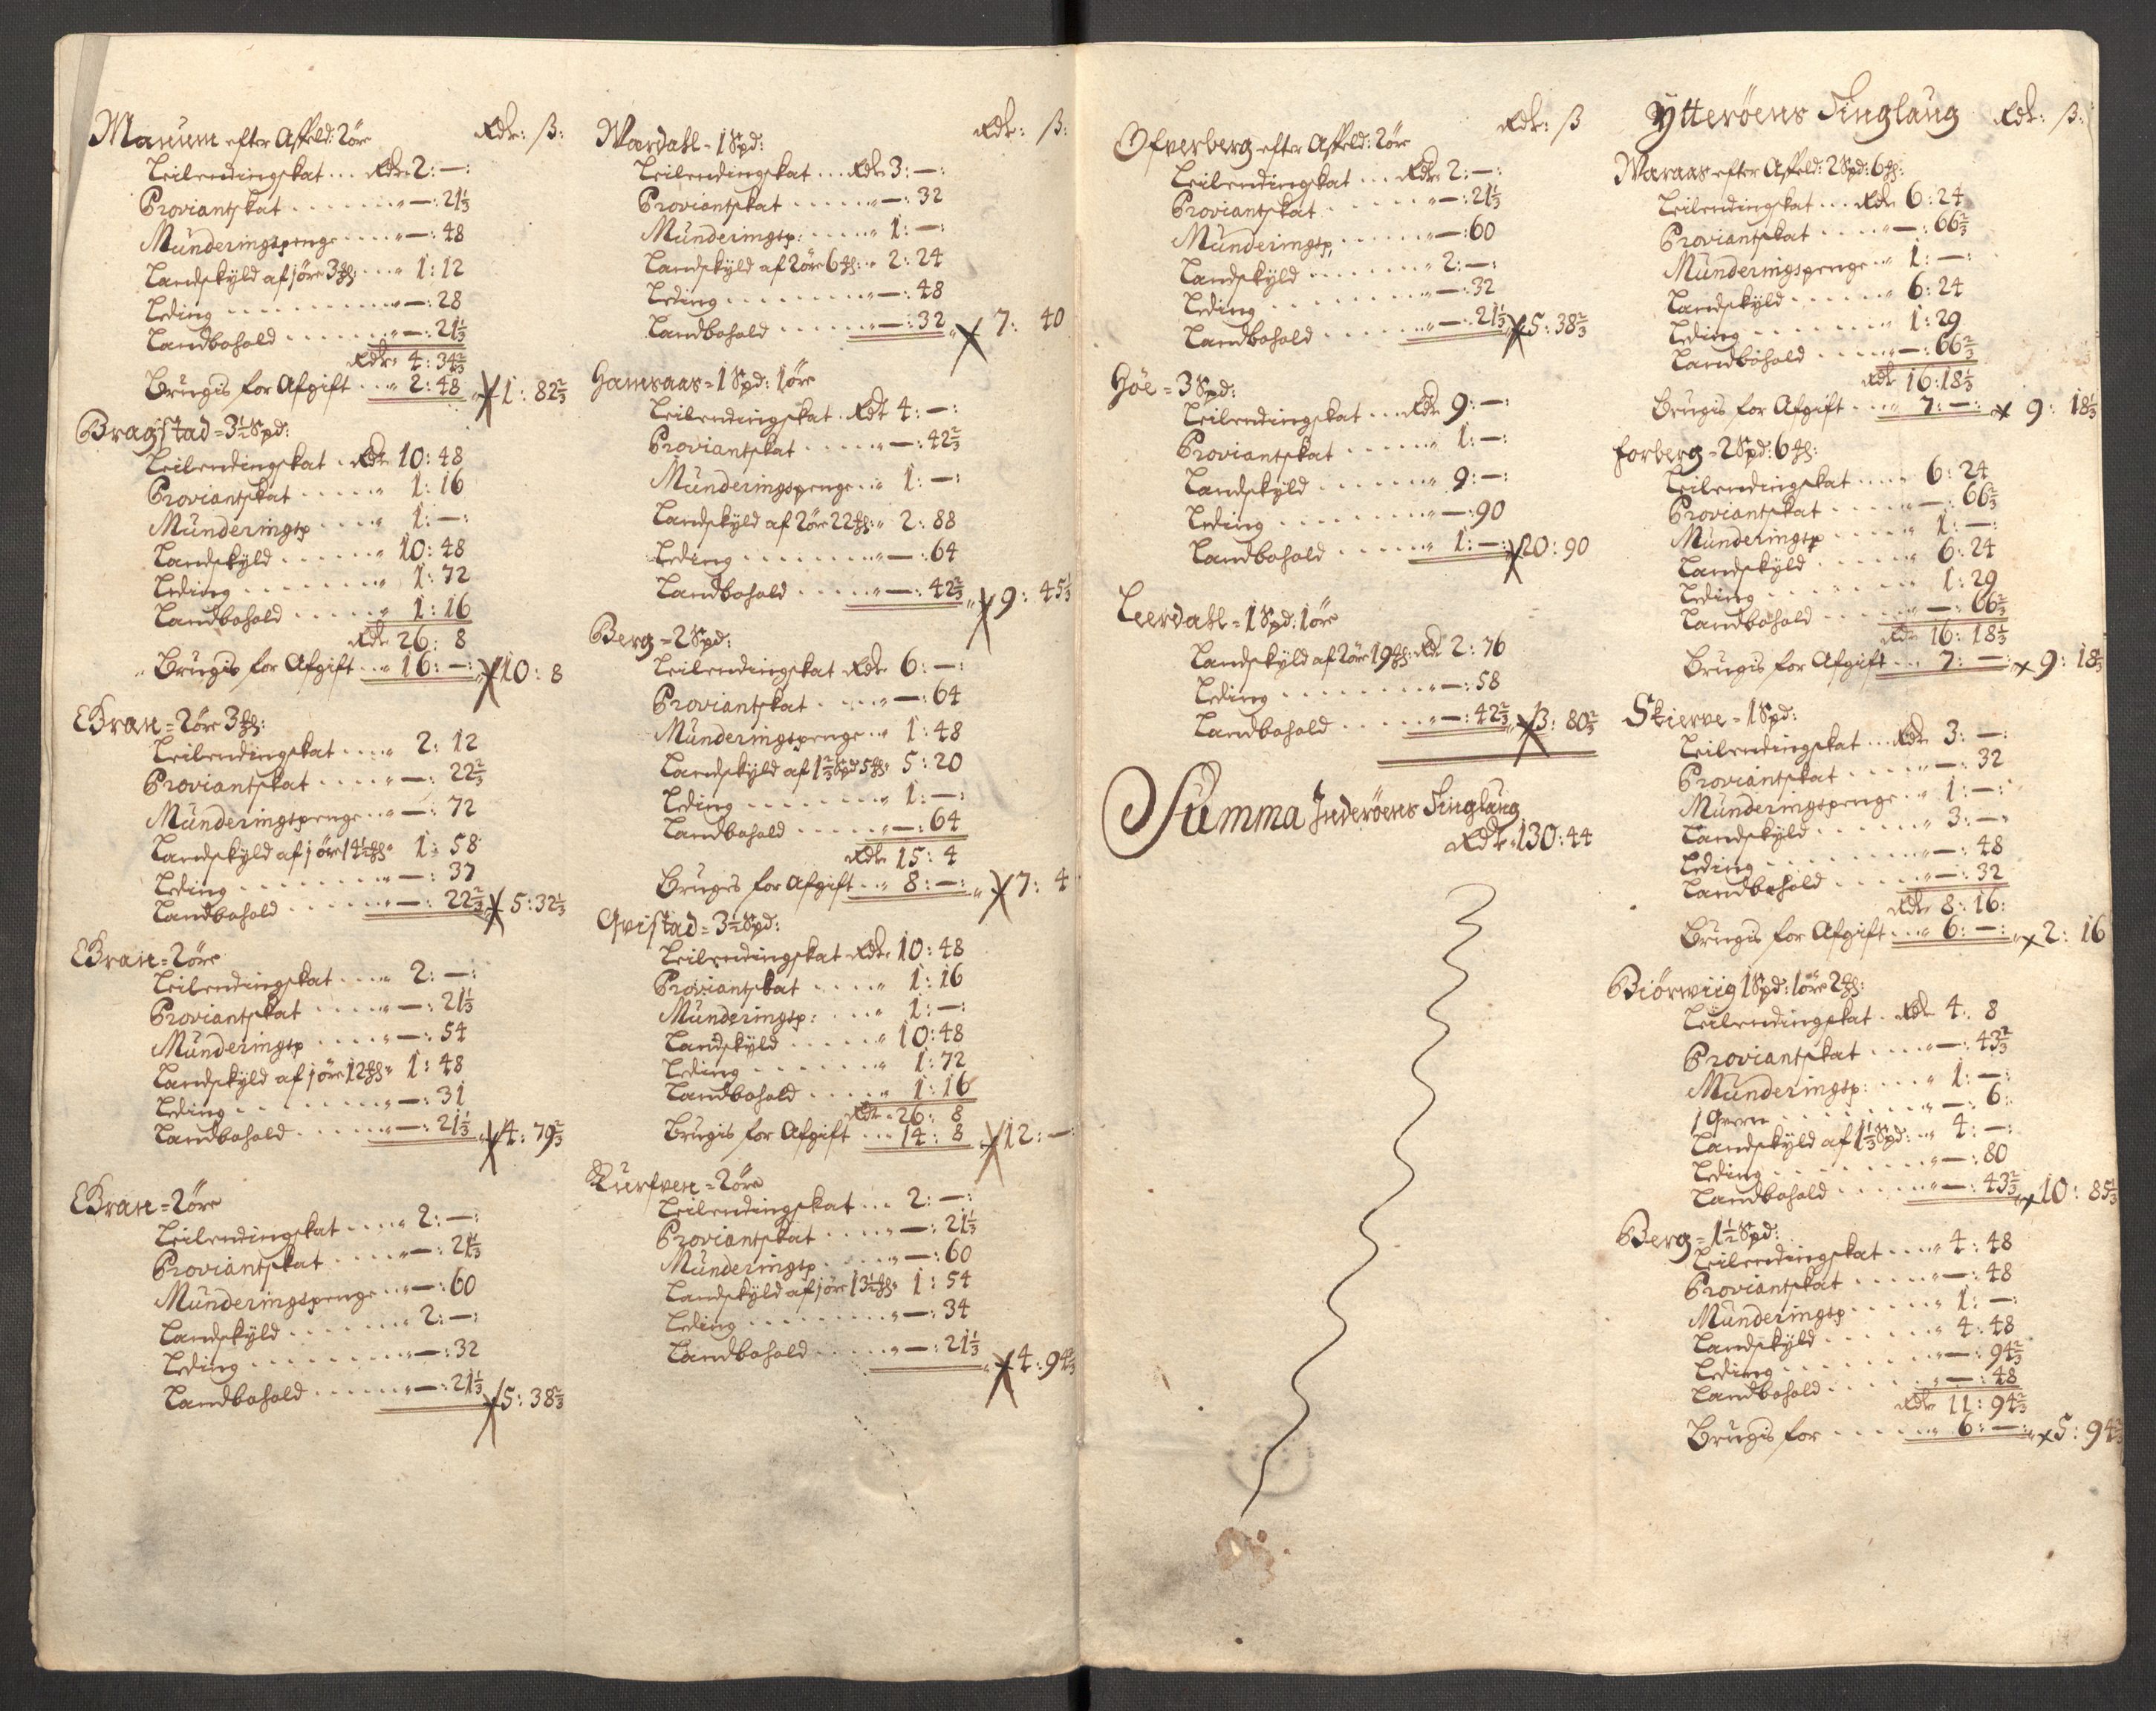 Rdr: ß:
Manum efter Affeld: 2öre
Leilendingskat ... Rdr 2: —:
Proviantskat ....... " —: 21⅓
Munderingspenge ..... " —: 48
Landskyld af jöre 3 ... " 1: 12
Leding ......... " —: 28
Landbohold ...... " —: 21⅓
Rdr 4: 34⅔
Brugis for Afgift ... " 2: 48 " 1: 82⅔
Bragstad = 3½ Spd:
Leilendingskat . Rdr 10: 48
Proviantskat ..... " 1: 16
Munderingsp .... " 1: —:
Landskyld ...... " 10: 48
Leding ........ " 1: 72
Landbohold ..... " 1: 16
Rdr 26: 8
" Brugis for Afgift .. " 16: —: " 10: 8
Bran = 2öre 3
Leilendingskat .... " 2: 12
Proviantskat .... " —: 22⅔
Munderingspenge .. " —: 72
Landskyld af jöre 14½ " 1: 58
Leding ........ " —: 37
Landbohold ...... " —: 22⅔ " 5: 32⅓
Bran = 2öre
Leilendingskat .... " 2: —:
Proviantskat ..... " —: 21⅓
Munderingsp ..... " —: 54
Landskyld af jöre 12 " 1: 48
Leding ......... " —: 31
Landbohold ...... " —: 21⅓ " 4: 79⅔
Bran = 2öre
Leilendingskat .... " 2: —:
Proviantskat ..... " —: 21⅓
Munderingspenge .. " —: 60
Landskyld ....... " 2: —:
Leding ......... " —: 32
Landbohold ...... " —: 21⅓ 5: 38⅔
Rdr: ß:
Wardahl = 1 Spd:
Leilendingskat ... Rdr 3: —:
Proviantskat ...... " —: 32
Munderingsp: ..... " 1: —:
Landskyld af 2öre 6 " 2: 24
Leding ......... " —: 48
Landbohold ...... " —: 32 " 7: 40
Hamsaas = 1 Spd: 1öre
Leilendingskat . Rdr 4: —:
Proviantskat ..... " —: 42⅔
Munderingspenge .. " 1: —:
Landskyld af 2öre 22 " 2: 88
Leding ........ " —: 64
Landbohold ..... " —: 42⅔ " 9: 45⅓
Berg = 2 Spd:
Leilendingskat Rdr 6: —:
Proviantskat .... " —: 64
Munderingspenge .. " 1: 48
Landskyld af 1⅔ Spd 5 " 5: 20
Leding ........ " 1: —:
Landbohold ..... " —: 64
Rdr 15: 4
Bruges for Afgift .. " 8: —: " 7: 4
Qvistad = 3½ Spd:
Leilendingskat Rdr 10: 48
Proviantskat .... " 1: 16
Munderingsp: .... " 1: —:
Landskyld ..... " 10: 48
Leding ....... " 1: 72
Landbohold .... " 1: 16
Rdr 26: 8
Brugis for Afgift ... 14: 8 12: —:
Kurfven = 2öre
Leilendingskat ... 2: —:
Proviantskat .... " —: 21⅓
Munderingsp ..... " —: 60
Landskyld af jöre 13½ " 1: 54
Leding ......... " —: 34
Landbohold ..... " —: 21⅓ " 4: 94⅔
Rdr: ß
Ofverberg efter Affeld: 2öre
Leilendingskat ... Rdr 2: —:
Proviantskat ...... " —: 21⅓
Munderingsp, ..... " —: 60
Landskyld ....... " 2: —:
Leding ......... " —: 32
Landbohold ...... " —: 21⅓ " 5: 38⅔
Höe = 3 Spd:
Leilendingskat ... Rdr 9: —:
Proviantskat ..... " 1: —:
Landskyld ....... " 9: —:
Leding ........ " —: 90
Landbohold ...... " 1: —: 20: 90
Leerdahl = 1 Spd: 1öre
Landskyld af 2öre 19 Rdr 2: 76
Leding ......... " —: 58
Landbohold ...... " —: 42⅔ " 3: 80⅔
Summa Inderöens Tinglaug
Rdr " 130: 44
Ytteröens Tinglaug Rdr: ß:
Waraas efter Affeld: 2 Spd: 6
Leilendingskat ... Rdr 6: 24
Proviantskat .... " —: 66⅔
Munderingspenge .. " 1: —:
Landskyld ...... " 6: 24
Leding ........ " 1: 29
Landbohold ..... " —: 66⅔
Rdr 16: 18⅓
Brugis for Afgift .... 7: —: 9: 18⅓
Forberg = 2 Spd: 6
Leilendingskat .... " 6: 24
Proviantskat ..... " —: 66⅔
Munderingsp ..... " 1: —:
Landskyld ...... " 6: 24
Leding ........ 1: 29
Landbohold ..... " —: 66⅔
Rdr 16: 18⅓
Brugis for Afgift ... 7: —: " 9: 18⅓
Skierve = 1 Spd:
Leilendingskat ... Rdr 3: —:
Proviantskat ..... " —: 32
Munderingspenge .. " 1: —:
Landskyld ...... " 3: —:
Leding ......... " —: 48
Landbohold ..... " —: 32
Rdr 8: 16:
Brugis for Afgift ... " 6: —: " 2: 16
Biörwiig 1 Spd: 1öre 2
Leilendingskat . Rdr 4: 8
Proviantskat .... " —: 43⅔
Munderingsp: .... " 1: —:
........ " —: 6:
Landskyld af 1⅓ Spd: .. " 4: —:
Leding ......... " —: 80
Landbohold ..... " —: 43⅔ " 10: 85⅓
Berg = 1½ Spd:
Leilendingskat .... " 4: 48
Proviantskat ..... " —: 48
Munderingsp ..... " 1: —:
Landskyld ...... " 4: 48
Leding ........ " —: 94⅔
Landbohold ..... " —: 48
Rdr 11: 94⅔
Brugis for ..... " 6: —: " 5: 94⅔